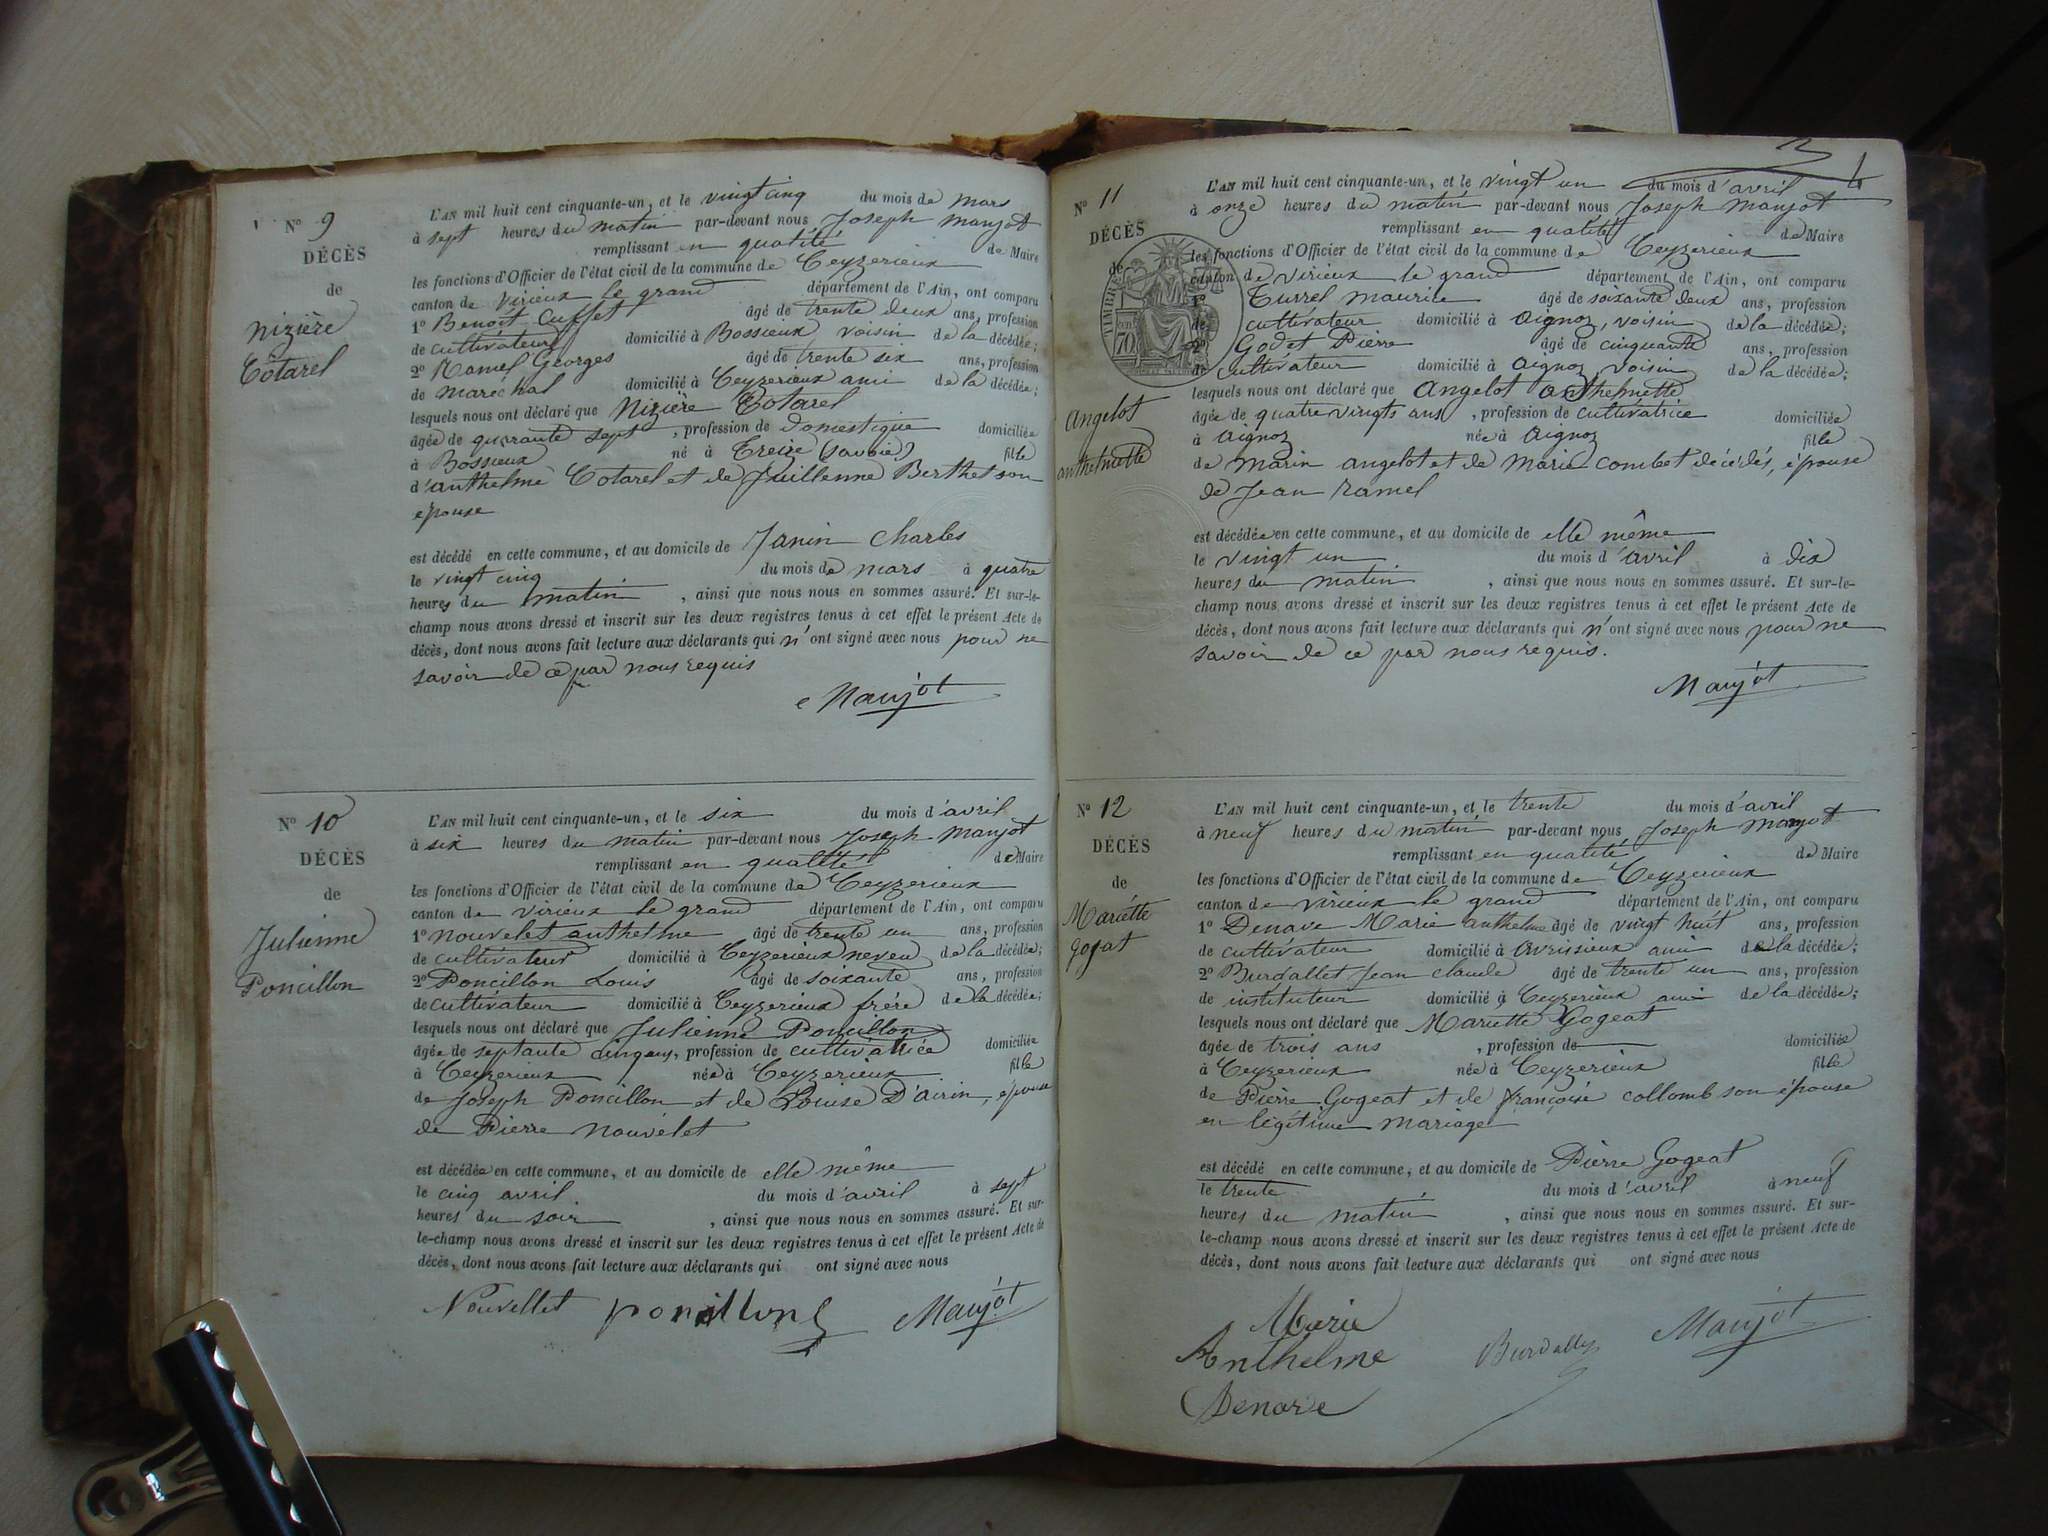 N° 9
DÉCÈS
de
Nizière
Cotarel
L'AN mil huit cent cinquante-un, et le vingt cinq du mois de mars
à sept heures du matin par-devant nous Joseph Maujot
remplissant en qualité de Maire
les fonctions d'Officier de l'état civil de la commune de Ceyzerieux
canton de virieux le grand département de l'Ain, ont comparu
1° Benoît Cuffet âgé de trente deux ans, profession
de cultivateur domicilié à Bossieux voisin de la décédée;
2° Ramel Georges âgé de trente six ans, profession
de Maréchal domicilié à Ceyzerieux ami de la décédée;
lesquels nous ont déclaré que Nizière Cotarel
âgée de quarante sept, profession de Domestique domiciliée
à Bossieux né à (savoie) fille
d'anthelme Cotarel et de Juillenne Berthet son
epouse
est décédé en cette commune, et au domicile de Janin Charles
le vingt cinq du mois de mars à quatre
heures du matin, ainsi que nous nous en sommes assuré. Et sur-le-
champ nous avons dressé et inscrit sur les deux registres tenus à cet effet le présent Acte de
décès, dont nous avons fait lecture aux déclarants qui n'ont signé avec nous pour ne
savoir de ce par nous requis
Maujot
N° 10
DÉCÈS
de
Julienne
Poncillon
L'AN mil huit cent cinquante-un, et le six du mois d'avril
à six heures du matin par-devant nous Joseph Maujot
remplissant en qualité de Maire
les fonctions d'Officier de l'état civil de la commune de Ceyzerieux
canton de virieux le grand département de l'Ain, ont comparu
1° nouvelet anthelme âgé de trente un ans, profession
de cultivateur domicilié à Ceyzerieux neveu de la décédée;
2° Poncillon Louis âgé de soixante ans, profession
de cultivateur domicilié à Ceyzerieux frère de la décédée;
lesquels nous ont déclaré que Julienne Poncillon
âgée de septante cinq ans, profession de cultivatrice domiciliée
à Ceyzerieux née à Ceyzerieux fille
de Joseph Poncillon et de Louise D'airin, épouse
de Pierre Nouvelet
est décédée en cette commune, et au domicile de elle même
le cinq avril du mois d'avril à sept
heures du soir, ainsi que nous nous en sommes assuré. Et sur-
le-champ nous avons dressé et inscrit sur les deux registres tenus à cet effet le présent Acte de
décès, dont nous avons fait lecture aux déclarants qui ont signé avec nous
Nouvellet poncillon Maujot
N° 11
DÉCÈS
de
TIMBRE
70
Angelot
anthelmette
L'AN mil huit cent cinquante-un, et le vingt un du mois d'avril
à onze heures du matin par-devant nous Joseph Maujot
remplissant en qualité de Maire
les fonctions d'Officier de l'état civil de la commune de Ceyzerieux
canton de virieux le grand département de l'Ain, ont comparu
1° Turrel maurice âgé de soixante deux ans, profession
de cultivateur domicilié à Aignoz, voisin de la décédée;
2° Godet Pierre âgé de cinquante ans, profession
de cultivateur domicilié à Aignoz, voisin de la décédée;
lesquels nous ont déclaré que Angelot anthelmette
âgée de quatre vingts ans, profession de cultivatrice domiciliée
à Aignoz née à Aignoz fille
de Marin angelot et de Marie combet décédés, épouse
de Jean Ramel
est décédée en cette commune, et au domicile de elle même
le vingt un du mois d'avril à dix
heures du matin, ainsi que nous nous en sommes assuré. Et sur-le-
champ nous avons dressé et inscrit sur les deux registres tenus à cet effet le présent Acte de
décès, dont nous avons fait lecture aux déclarants qui n'ont signé avec nous pour ne
savoir de ce par nous requis.
Maujot
N° 12
DÉCÈS
de
Mariette
gogeat
L'AN mil huit cent cinquante-un, et le trente du mois d'avril
à neuf heures du matin par-devant nous Joseph Maujot
remplissant en qualité de Maire
les fonctions d'Officier de l'état civil de la commune de Ceyzerieux
canton de virieux le grand département de l'Ain, ont comparu
1° Denave Marie anthelme âgé de vingt huit ans, profession
de cultivateur domicilié à avrissieux ami de la décédée;
2° Burdallet Jean claude âgé de trente un ans, profession
de instituteur domicilié à Ceyzerieux ami de la décédée;
lesquels nous ont déclaré que Mariette Gogeat
âgée de trois ans, profession de domiciliée
à Ceyzerieux née à Ceyzerieux fille
de Pierre Gogeat et de françoise collomb son épouse
en légitime mariage
est décédé en cette commune, et au domicile de Pierre Gogeat
le trente du mois d'avril à neuf
heures du matin, ainsi que nous nous en sommes assuré. Et sur-
le-champ nous avons dressé et inscrit sur les deux registres tenus à cet effet le présent Acte de
décès, dont nous avons fait lecture aux déclarants qui ont signé avec nous
Marie
Anthelme
Denave
Maujot